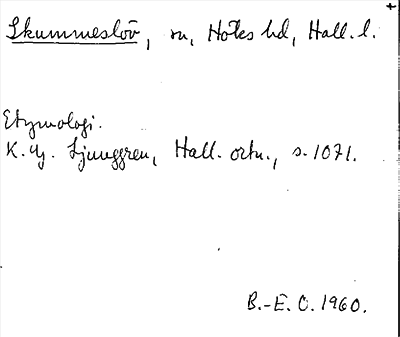 Skummeslöv, sn, Höks hd, Hall. l.
Etymologi.
K. G. Ljunggren, Hall. ortn., s. 1071.
B.-E. O. 1960.